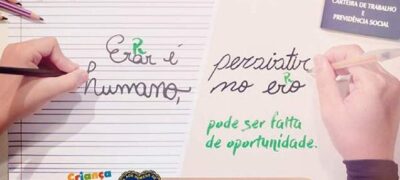 CARTEIRA DE TRABALHO
E
PREVIDÊNCIA SOCIAL
R
Erar é
humano,
persistir
R
no ero
pode ser falta
de oportunidade.
Criança